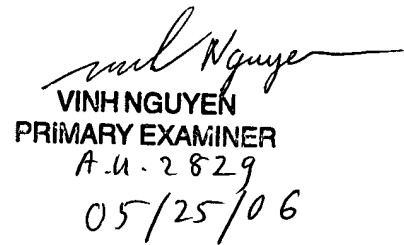 Vinh Nguyen
VINH NGUYEN
PRIMARY EXAMINER
A.U. 2829
05/25/06